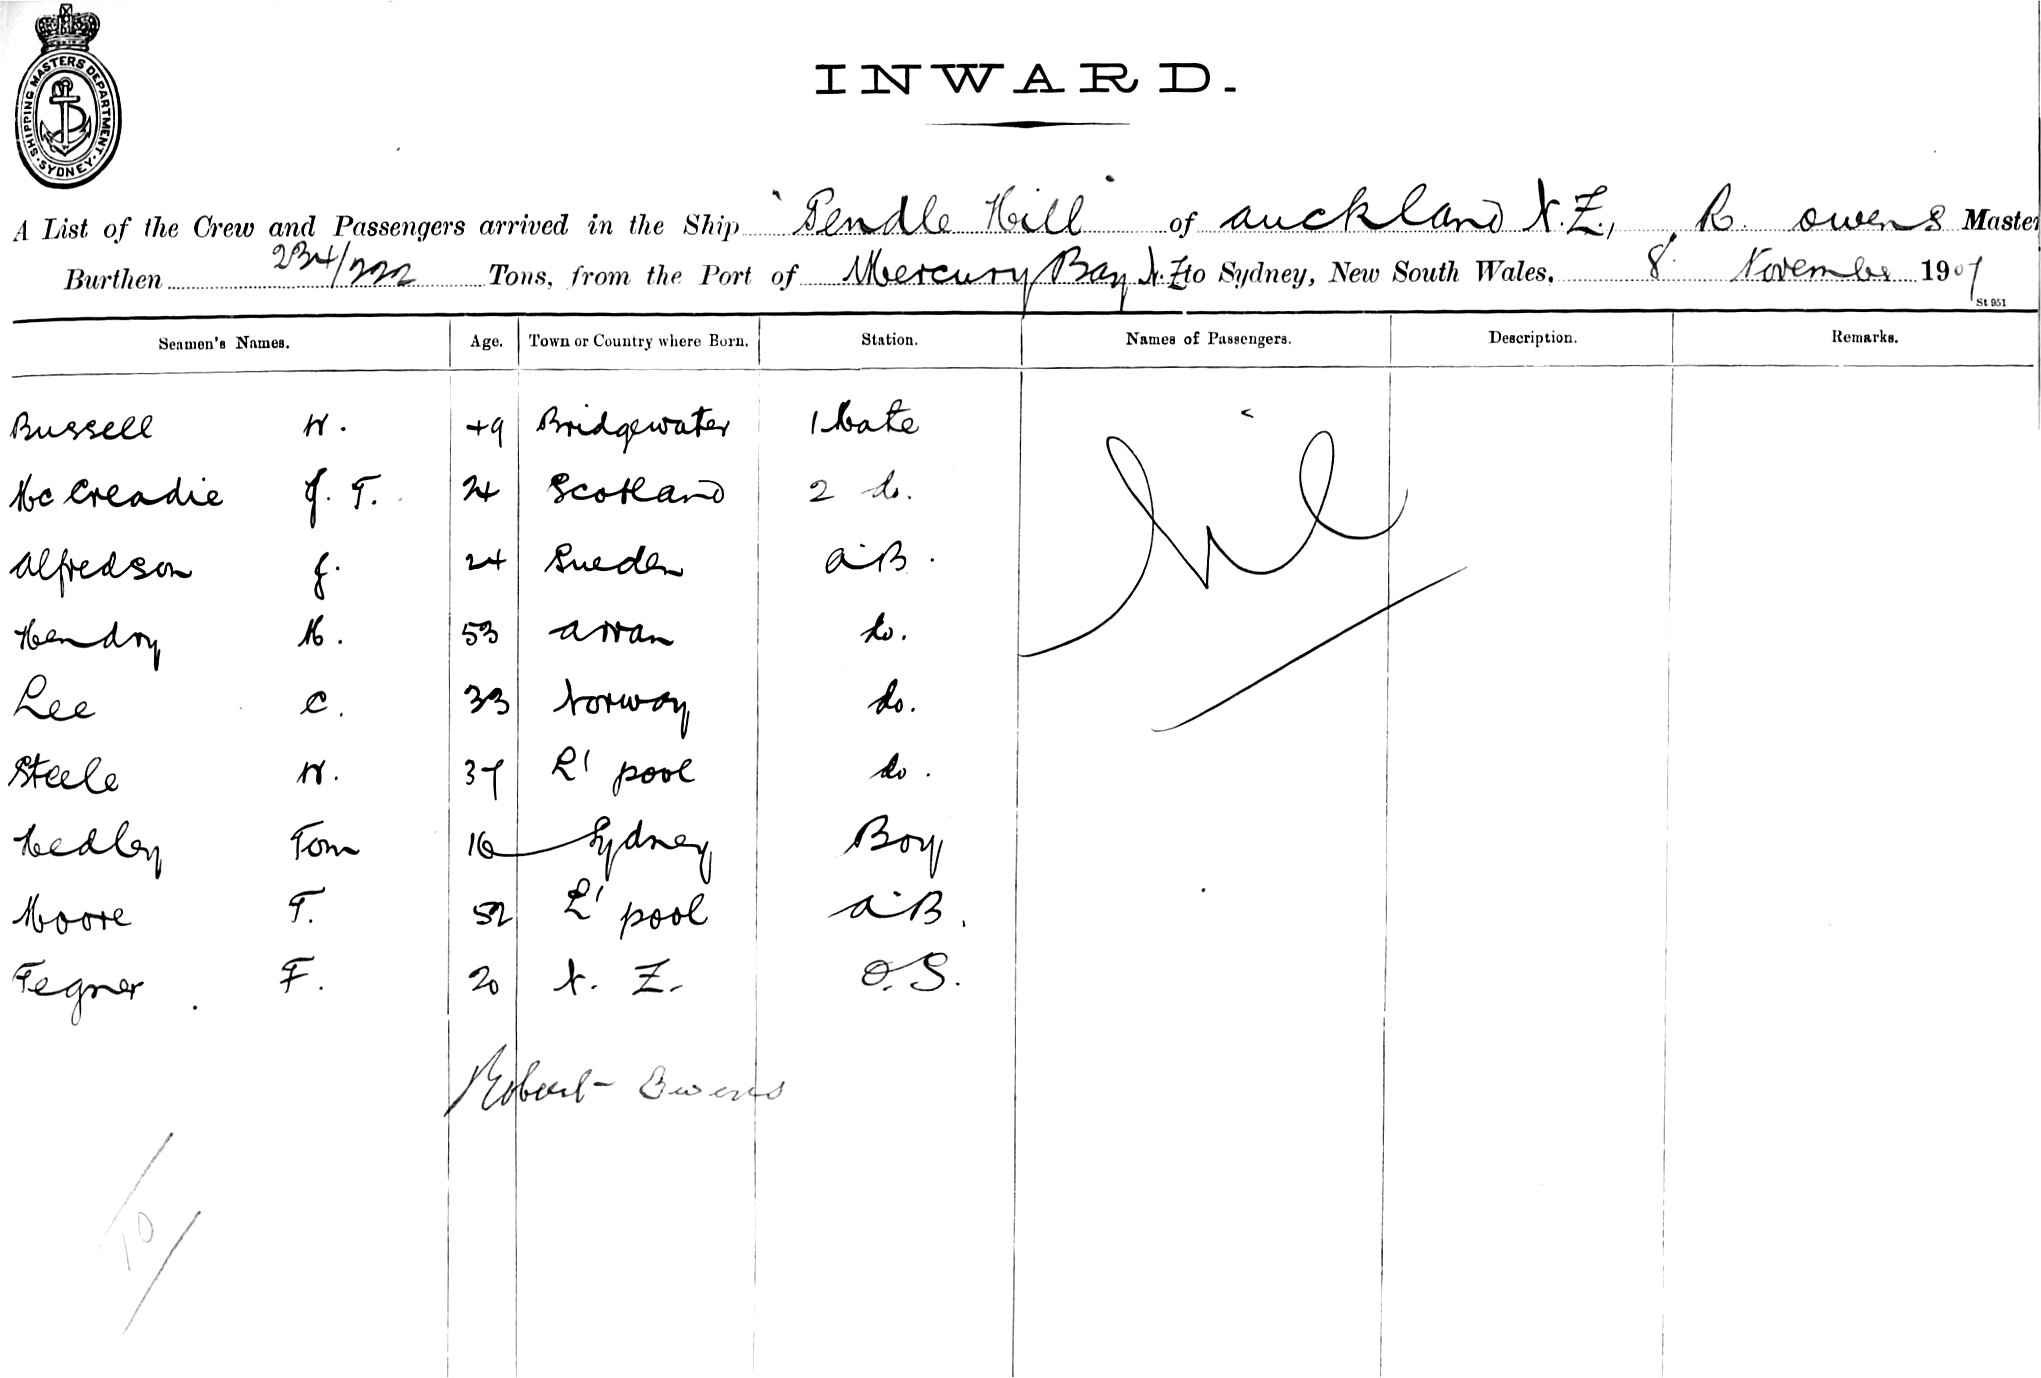 SHIPPING MASTERS DEPARTMENT. SYDNEY.
INWARD.
A List of the Crew and Passengers arrived in the Ship "Pendle Hill" of Auckland N.Z., R. Owens Master
Burthen 234/222 Tons, from the Port of Mercury Bay N.Z to Sydney, New South Wales. 8. November 1907
St 951
Seamen's Names. Age. Town or Country where Born. Station. Names of Passengers. Description. Remarks.
Bussell W. 49 Bridgewater 1 Mate Nil
McCreadie J. T. 24 Scotland 2 do.
Alfredson J. 24 Sueden A.B.
Hendry M. 53 Arran do.
Lee C. 33 Norway do.
Steele W. 37 L'pool do.
Hedley Tom 16 Sydney Boy
Moore T. 52 L'pool A.B.
Tegner F. 20 N. Z. O.S.
Robert Owens
10